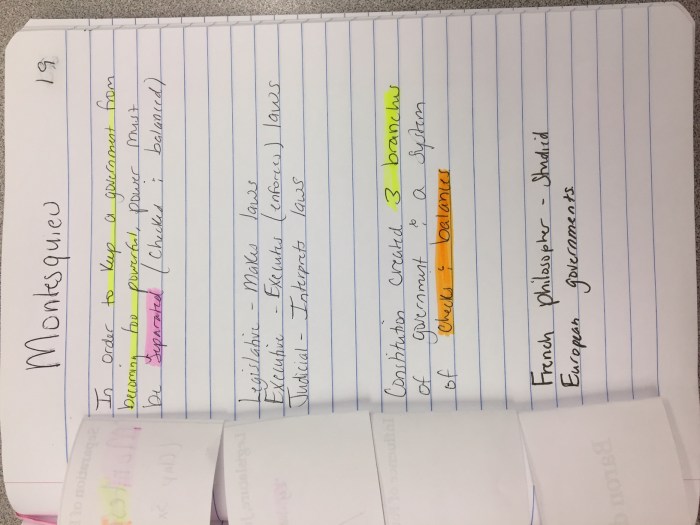 19
Montesquieu
In order to keep a government from
becoming too powerful, power must
be separated (checked & balanced)
Legislative - Makes laws
Executive - Executes (enforces) laws
Judicial - Interprets laws
Constitution created 3 branches
of government & a system
of checks & balances
French philosopher - Studied
European governments